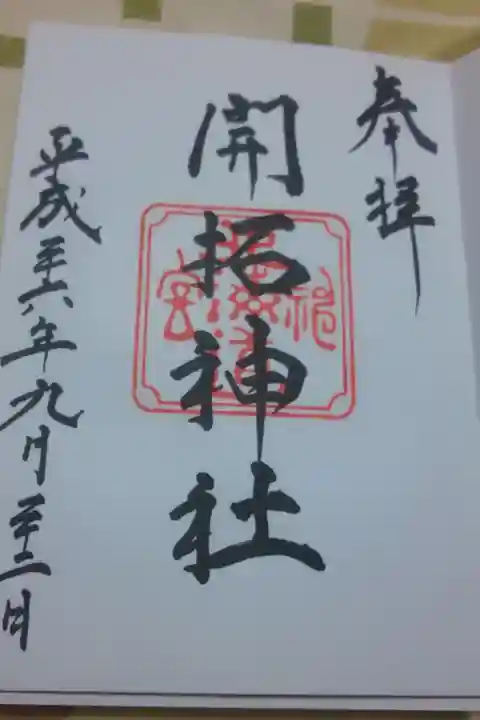 奉拝
開拓神社
平成二十六年九月二十二日